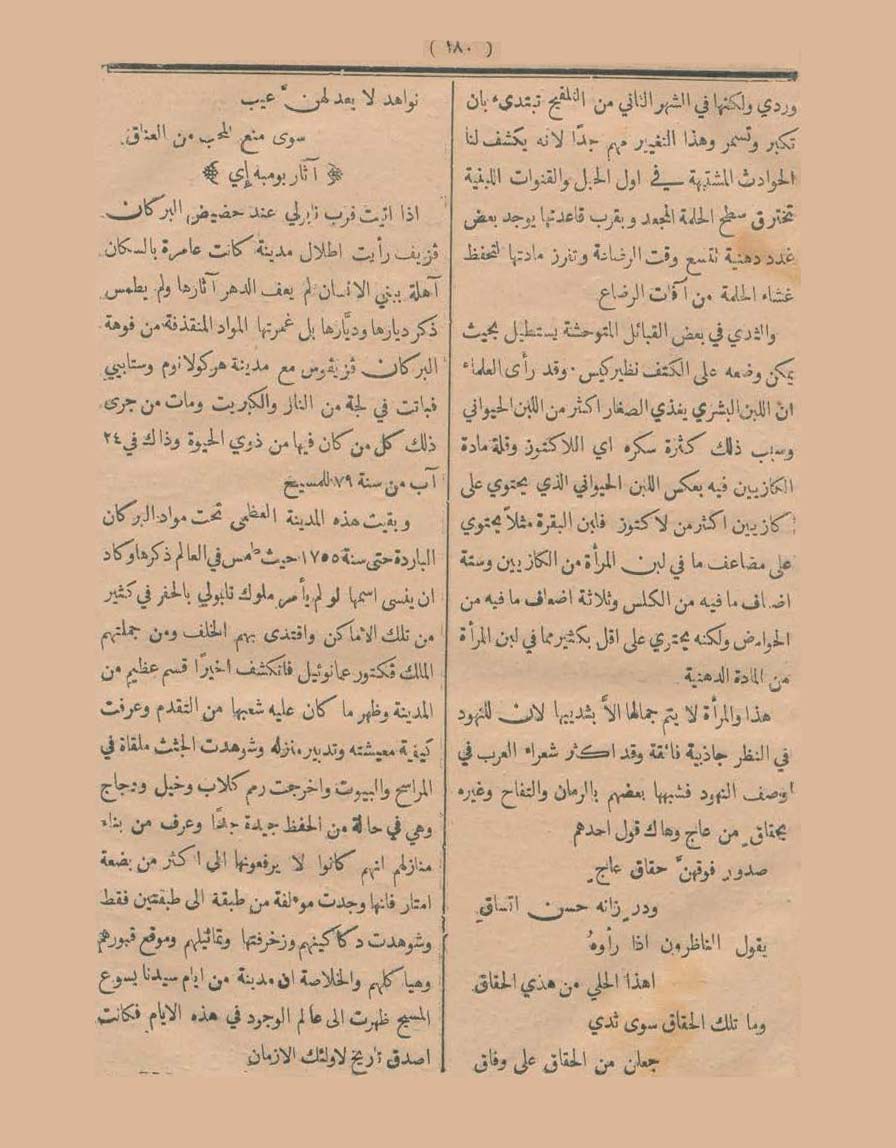 ( ١٨٠ )
وردي ولكنها في الشهر الثاني من التلقيح تبتدىء بان
تكبر وتسمر وهذا التغيير مهم جدًا لانه يكشف لنا
الحوادث المشتبهة في اول الحبل والقنوات اللبنية
تخترق سطح الحلمة المجعد وبقرب قاعدتها يوجد بعض
غدد دهنية تتسع وقت الرضاعة وتفرز مادتها لتحفظ
غشاء الحلمة من آفات الرضاع
والثدي في بعض القبائل المتوحشة يستطيل بحيث
يمكن وضعه على الكتف نظير كيس . وقد رأى العلماء
ان اللبن البشري يغذي الصغار اكثر من اللبن الحيواني
وسبب ذلك كثرة سكره اي اللاكتوز وقلة مادة
الكازيين فيه بعكس اللبن الحيواني الذي يحتوي على
كازيين اكثر من لاكتوز فلبن البقرة مثلاً يحتوي
على مضاعف ما في لبن المرأة من الكازيين وستة
اضعاف ما فيه من الكلس وثلاثة اضعاف ما فيه من
الحوامض ولكنه يحتوي على اقل بكثير مما في لبن المرأة
من المادة الدهنية
هذا والمرأة لا يتم جمالها الاَّ بثدييها لان للنهود
في النظر جاذبية فائقة وقد اكثر شعراء العرب في
وصف النهود فشبهها بعضهم بالرمان والتفاح وغيره
بحقاق من عاج وهاك قول احدهم
صدور فوقهنَّ حقاق عاج
ودر زانه حسن اتساق
يقول الناظرون اذا رأوهُ
اهذا الحلي من هذي الحقاق
وما تلك الحقاق سوى ثدي
جعلن من الحقاق على وفاق
نواهد لا يعد لهنَّ عيب
سوى منع المحب من العناق
﴿ آثار بومبه إي ﴾
اذا اتيت قرب نابولي عند حضيض البركان
ڤزيف رأيت اطلال مدينة كانت عامرة بالسكان
آهلة ببني الانسان لم يعف الدهر آثارها ولم يطمس
ذكر ديارها وديَّارها بل غمرتها المواد المنقذفة من فوهة
البركان ڤزيڤوس مع مدينة هركولانوم وستابيي
فباتت في لجة من النار والكبريت ومات من جرى
ذلك كل من كان فيها من ذوي الحيوة وذاك في ٢٤
آب من سنة ٧٩ للمسيح
وبقيت هذه المدينة العظمى تحت مواد البركان
الباردة حتى سنة ١٧٥٥ حيث طمس في العالم ذكرها وكاد
ان ينسى اسمها لو لم يأمر ملوك نابولي بالحفر في كثير
من تلك الاماكن واقتدى بهم الخلف ومن جملتهم
الملك ڤكتور عمانوئيل فانكشف اخيرًا قسم عظيم من
المدينة وظهر ما كان عليه شعبها من التقدم وعرفت
كيفية معيشته وتدبير منزله وشوهدت الجثث ملقاة في
المراسح والبيوت واخرجت رمم كلاب وخيل ودجاج
وهي في حالة من الحفظ جيدة جدًا وعرف من بناء
منازلهم انهم كانوا لا يرفعونها الى اكثر من بضعة
امتار فانها وجدت مؤلفة من طبقة الى طبقتين فقط
وشوهدت دكاكينهم وزخرفتها وتماثيلهم وموقع قبورهم
وهياكلهم والخلاصة ان مدينة من ايام سيدنا يسوع
المسيح ظهرت الى عالم الوجود في هذه الايام فكانت
اصدق تاريخ لاولئك الازمان